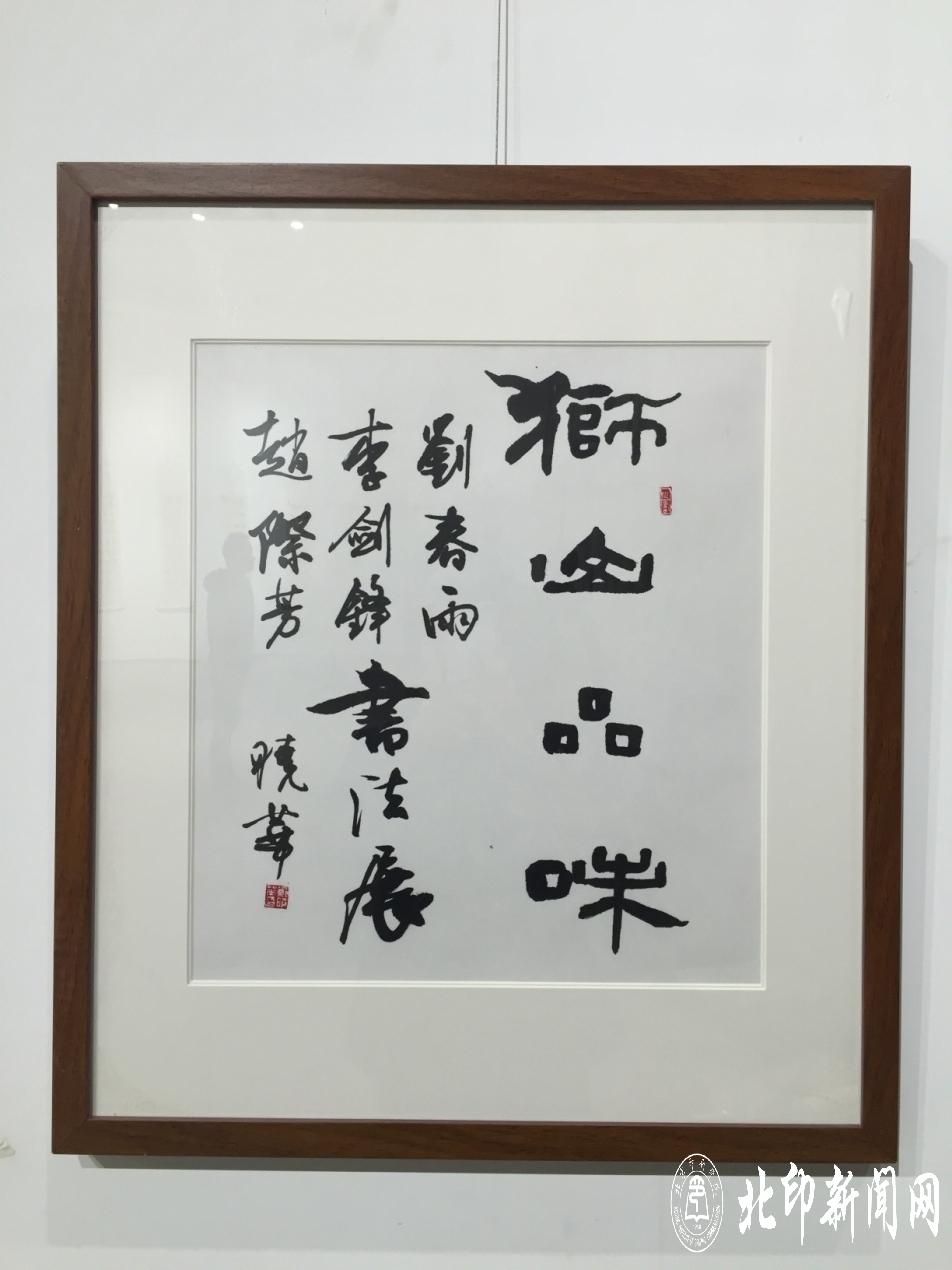 獅山品味
劉春雨
李劍鋒書法展
趙際芳
曉華
北印新闻网